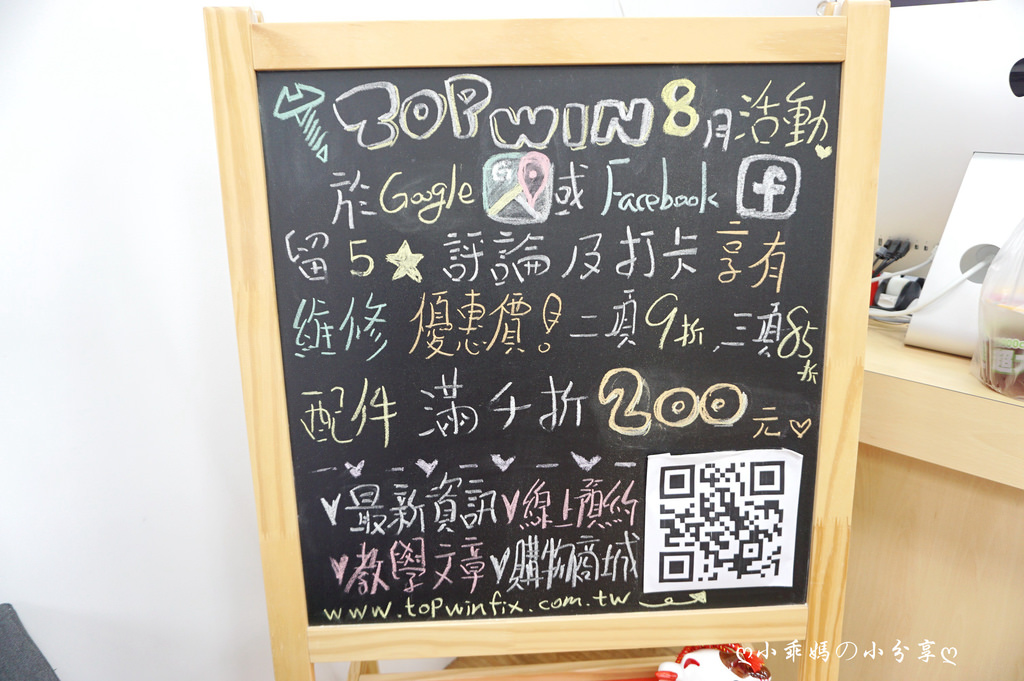 TOP WIN 8月活動
於 Google 或 Facebook
留 5 評論及打卡 享有
維修 優惠價! 二項9折,三項85折
配件 滿千折 200元
最新資訊 線上預約
教學文章 購物商城
www.topwinfix.com.tw
小乖媽の小分享